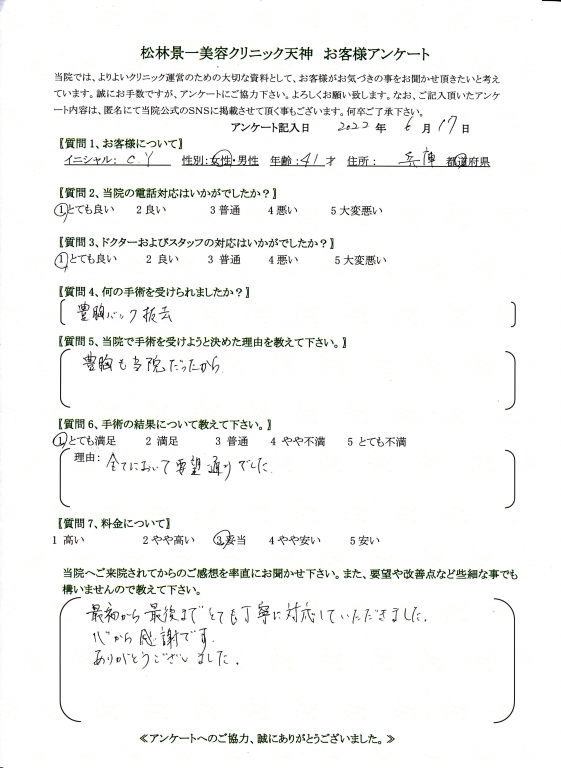 松林景一美容クリニック天神　お客様アンケート
当院では、よりよいクリニック運営のための大切な資料として、お客様がお気づきの事をお聞かせ頂きたいと考え
ています。誠にお手数ですが、アンケートにご協力下さい。よろしくお願い致します。なお、ご記入頂いたアンケ
ート内容は、匿名にて当院公式のSNSに掲載させて頂く事もございます。何卒ご了承下さい。
アンケート記入日　2022 年　6 月 17 日
【質問1、お客様について】
イニシャル： C Y　性別：女性・男性　年齢：41 才　住所：　兵庫　都道府県
【質問2、当院の電話対応はいかがでしたか？】
1 とても良い　2 良い　3 普通　4 悪い　5 大変悪い
【質問3、ドクターおよびスタッフの対応はいかがでしたか？】
1 とても良い　2 良い　3 普通　4 悪い　5 大変悪い
【質問4、何の手術を受けられましたか？】
豊胸バック抜去
【質問5、当院で手術を受けようと決めた理由を教えて下さい。】
豊胸も当院だったから
【質問6、手術の結果について教えて下さい。】
1 とても満足　2 満足　3 普通　4 やや不満　5 とても不満
理由： 全てにおいて要望通りでした
【質問7、料金について】
1 高い　2 やや高い　3 妥当　4 やや安い　5 安い
当院へご来院されてからのご感想を率直にお聞かせ下さい。また、要望や改善点など些細な事でも
構いませんので教えて下さい。
最初から最後までとても丁寧に対応していただきました。
心から感謝です。
ありがとうございました。
≪アンケートへのご協力、誠にありがとうございました。≫